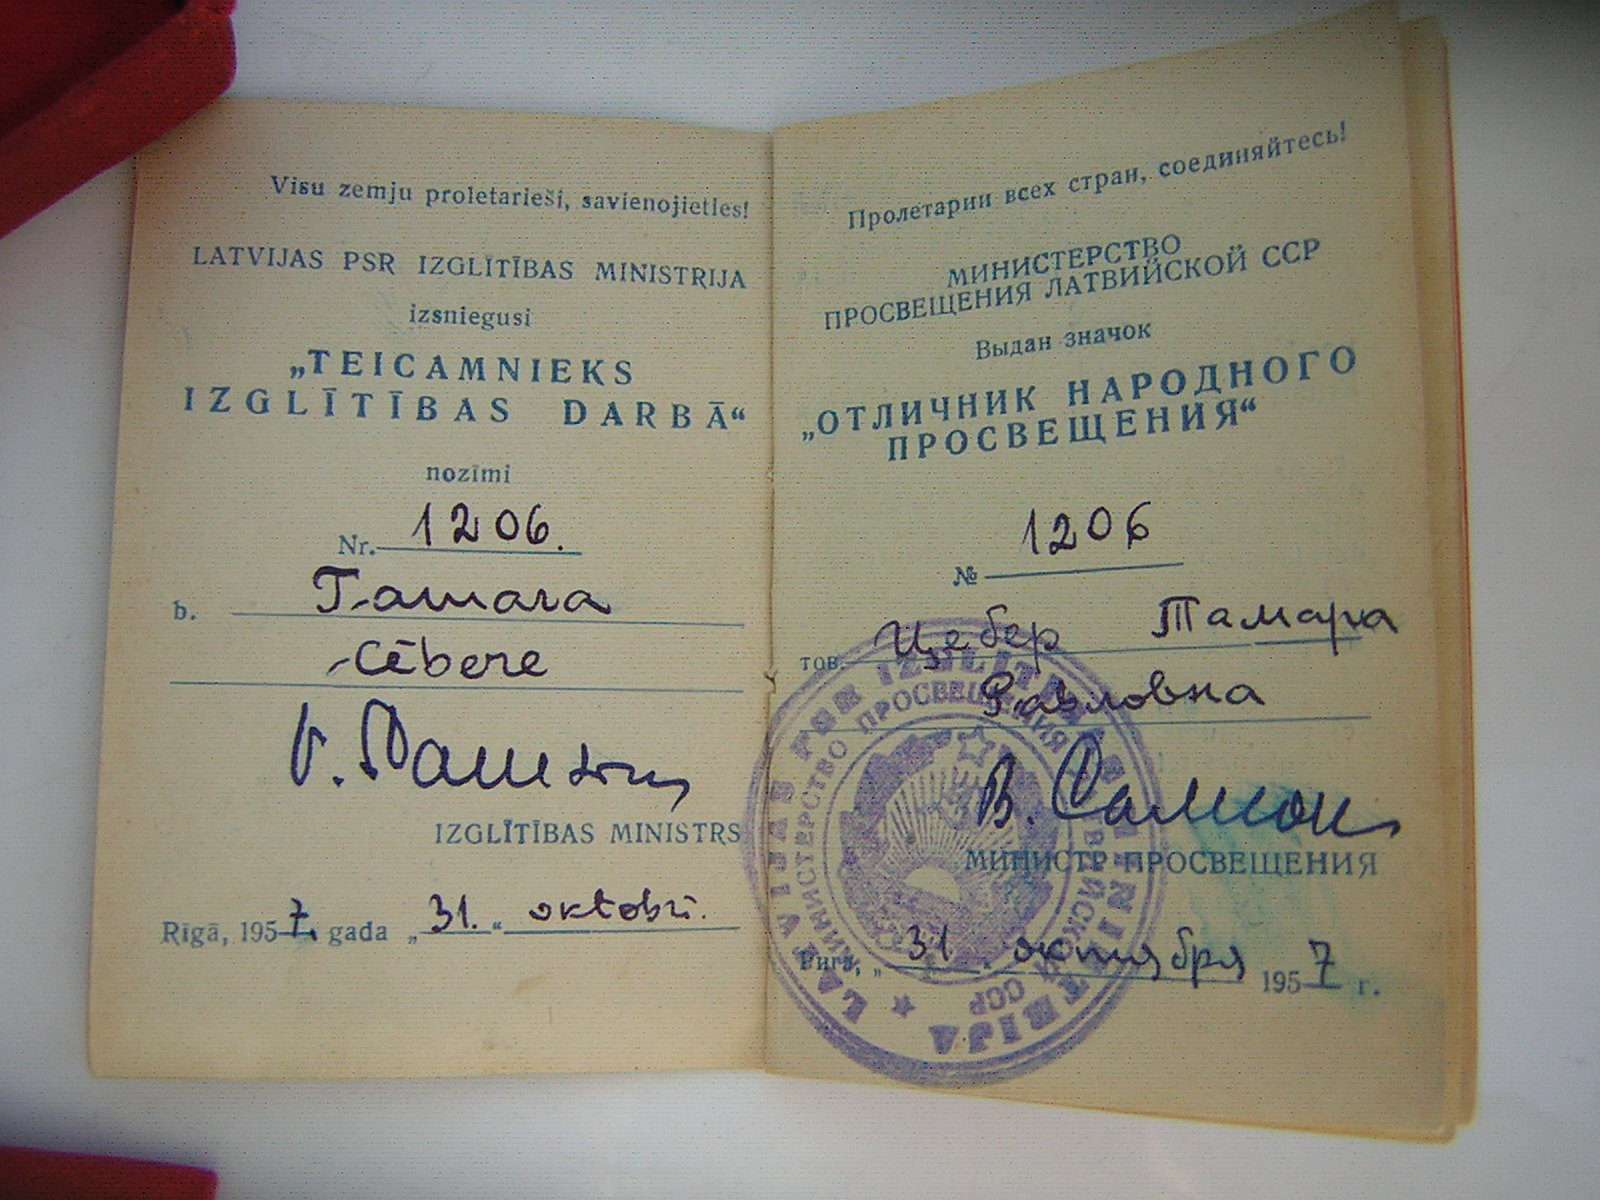 Visu zemju proletarieši, savienojieties!
LATVIJAS PSR IZGLĪTĪBAS MINISTRIJA
izsniegusi
„TEICAMNIEKS
IZGLĪTĪBAS DARBĀ“
nozīmi
Nr. 1206.
b. Tamara
Cēbere
V.
IZGLĪTĪBAS MINISTRS
Rīgā, 1957. gada „31.“ oktobrī.
Пролетарии всех стран, соединяйтесь!
МИНИСТЕРСТВО
ПРОСВЕЩЕНИЯ ЛАТВИЙСКОЙ ССР
Выдан значок
„ОТЛИЧНИК НАРОДНОГО
ПРОСВЕЩЕНИЯ“
№ 1206
тов. Цебер Тамара
Павловна
В. Самсон
МИНИСТР ПРОСВЕЩЕНИЯ
Рига, „31“ октября 1957 г.
LATVIJAS PSR IZGLĪTĪBAS MINISTRIJA
МИНИСТЕРСТВО ПРОСВЕЩЕНИЯ ЛАТВИЙСКОЙ ССР